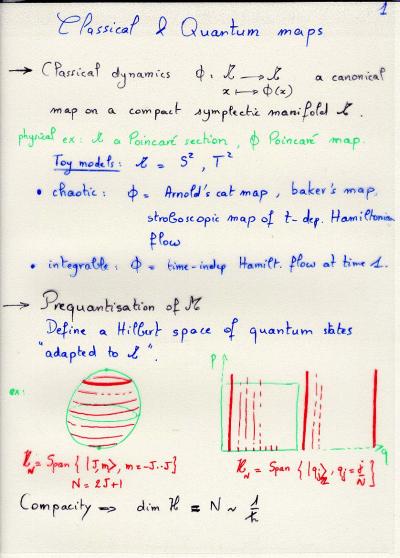 1
Classical & Quantum maps
→ Classical dynamics Φ: M → M a canonical
x ↦ Φ(x)
map on a compact symplectic manifold M.
physical ex: M a Poincaré section, Φ Poincaré map.
Toy models: M = S², T²
• chaotic: Φ = Arnold's cat map, baker's map,
stroboscopic map of t-dep. Hamiltonian
flow
• integrable: Φ = time-indep Hamilt. flow at time 1.
→ Prequantisation of M
Define a Hilbert space of quantum states
"adapted to M".
ex:
p
q
H_N = Span { |J,m⟩, m=-J..J }
N = 2J+1
H_N = Span { |q_j⟩, q_j = j/N }
Compacity ⇒ dim H = N ~ 1/ħ